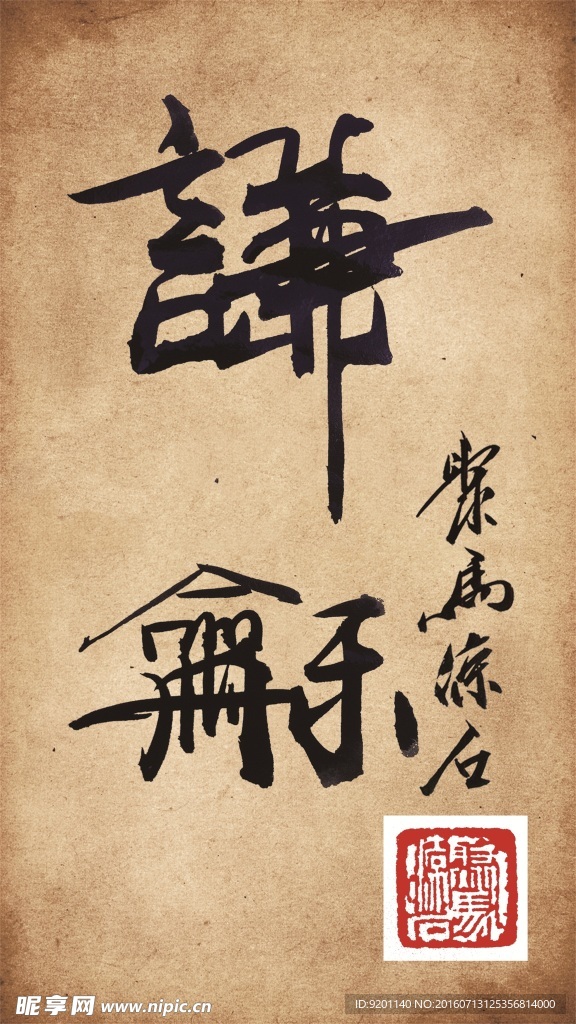 謙龢
聚馬涼石
昵享网 www.nipic.cn
ID:9201140 NO:20160713125356814000